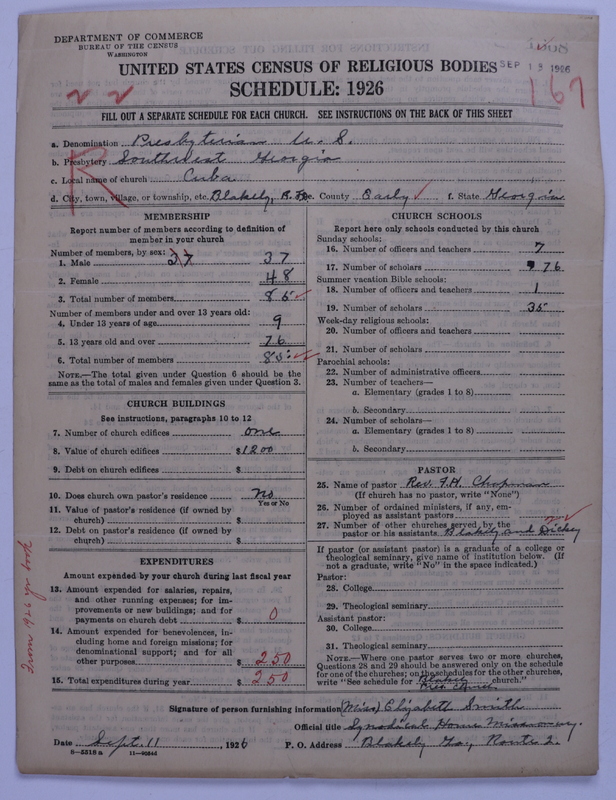 DEPARTMENT OF COMMERCE
BUREAU OF THE CENSUS
WASHINGTON
SEP 13 1926
UNITED STATES CENSUS OF RELIGIOUS BODIES
SCHEDULE: 1926
167
FILL OUT A SEPARATE SCHEDULE FOR EACH CHURCH. SEE INSTRUCTIONS ON THE BACK OF THIS SHEET
a. Denomination Presbyterian U. S.
b. Presbytery Southwest Georgia
c. Local name of church Cuba
d. City, town, village, or township, etc. Blakely, e. County Early f. State Georgia
R
MEMBERSHIP
Report number of members according to definition of
member in your church
Number of members, by sex:
1. Male 37 37
2. Female 48
3. Total number of members 85
Number of members under and over 13 years old:
4. Under 13 years of age 9
5. 13 years old and over 76
6. Total number of members 85
NOTE.—The total given under Question 6 should be the
same as the total of males and females given under Question 3.
CHURCH BUILDINGS
See instructions, paragraphs 10 to 12
7. Number of church edifices one
8. Value of church edifices $1200
9. Debt on church edifices $
10. Does church own pastor's residence no
Yes or No
11. Value of pastor's residence (if owned by
church) $
12. Debt on pastor's residence (if owned by
church) $
EXPENDITURES
Amount expended by your church during last fiscal year
13. Amount expended for salaries, repairs,
and other running expenses; for im-
provements or new buildings; and for
payments on church debt $ 0
14. Amount expended for benevolences, in-
cluding home and foreign missions; for
denominational support; and for all
other purposes $ 250
15. Total expenditures during year $ 250
From 1926 yr book
CHURCH SCHOOLS
Report here only schools conducted by this church
Sunday schools:
16. Number of officers and teachers 7
17. Number of scholars 76
Summer vacation Bible schools:
18. Number of officers and teachers 1
19. Number of scholars 35
Week-day religious schools:
20. Number of officers and teachers
21. Number of scholars
Parochial schools:
22. Number of administrative officers
23. Number of teachers—
a. Elementary (grades 1 to 8)
b. Secondary
24. Number of scholars—
a. Elementary (grades 1 to 8)
b. Secondary
PASTOR
25. Name of pastor Rev. F. H. Chapman
(If church has no pastor, write "None")
26. Number of ordained ministers, if any, em-
ployed as assistant pastors
27. Number of other churches served by the
pastor or his assistants Blakely and Dickey
If pastor (or assistant pastor) is a graduate of a college or
theological seminary, give name of institution below. (If
not a graduate, write "No" in the space indicated.)
Pastor:
28. College
29. Theological seminary
Assistant pastor:
30. College
31. Theological seminary
NOTE.—Where one pastor serves two or more churches,
Questions 28 and 29 should be answered only on the schedule
for one of the churches; on the schedules for the other churches,
write "See schedule for Blakely church."
Pres. Church
Signature of person furnishing information (Miss) Elizabeth Smith
Official title Synodical Home Missionary.
Date Sept. 11, 1926 P. O. Address Blakely Ga., Route 2.
8—5518 a